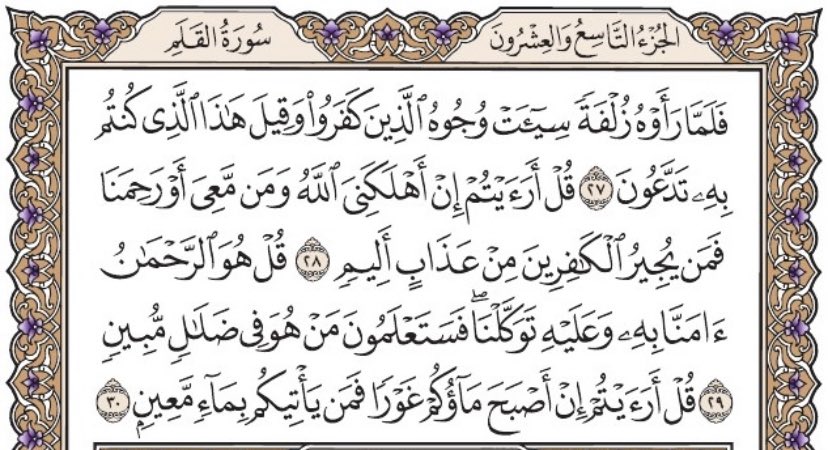 الجُزْءُ التَّاسِعُ وَالعِشْرُونَ سُورَةُ القَلَمِ
فَلَمَّا رَأَوْهُ زُلْفَةً سِيٓـَٔتْ وُجُوهُ ٱلَّذِينَ كَفَرُوا۟ وَقِيلَ هَٰذَا ٱلَّذِى كُنتُم
بِهِۦ تَدَّعُونَ ٢٧ قُلْ أَرَءَيْتُمْ إِنْ أَهْلَكَنِىَ ٱللَّهُ وَمَن مَّعِىَ أَوْ رَحِمَنَا
فَمَن يُجِيرُ ٱلْكَٰفِرِينَ مِنْ عَذَابٍ أَلِيمٍ ٢٨ قُلْ هُوَ ٱلرَّحْمَٰنُ
ءَامَنَّا بِهِۦ وَعَلَيْهِ تَوَكَّلْنَا ۖ فَسَتَعْلَمُونَ مَنْ هُوَ فِى ضَلَٰلٍ مُّبِينٍ
٢٩ قُلْ أَرَءَيْتُمْ إِنْ أَصْبَحَ مَآؤُكُمْ غَوْرًا فَمَن يَأْتِيكُم بِمَآءٍ مَّعِينٍۭ ٣٠